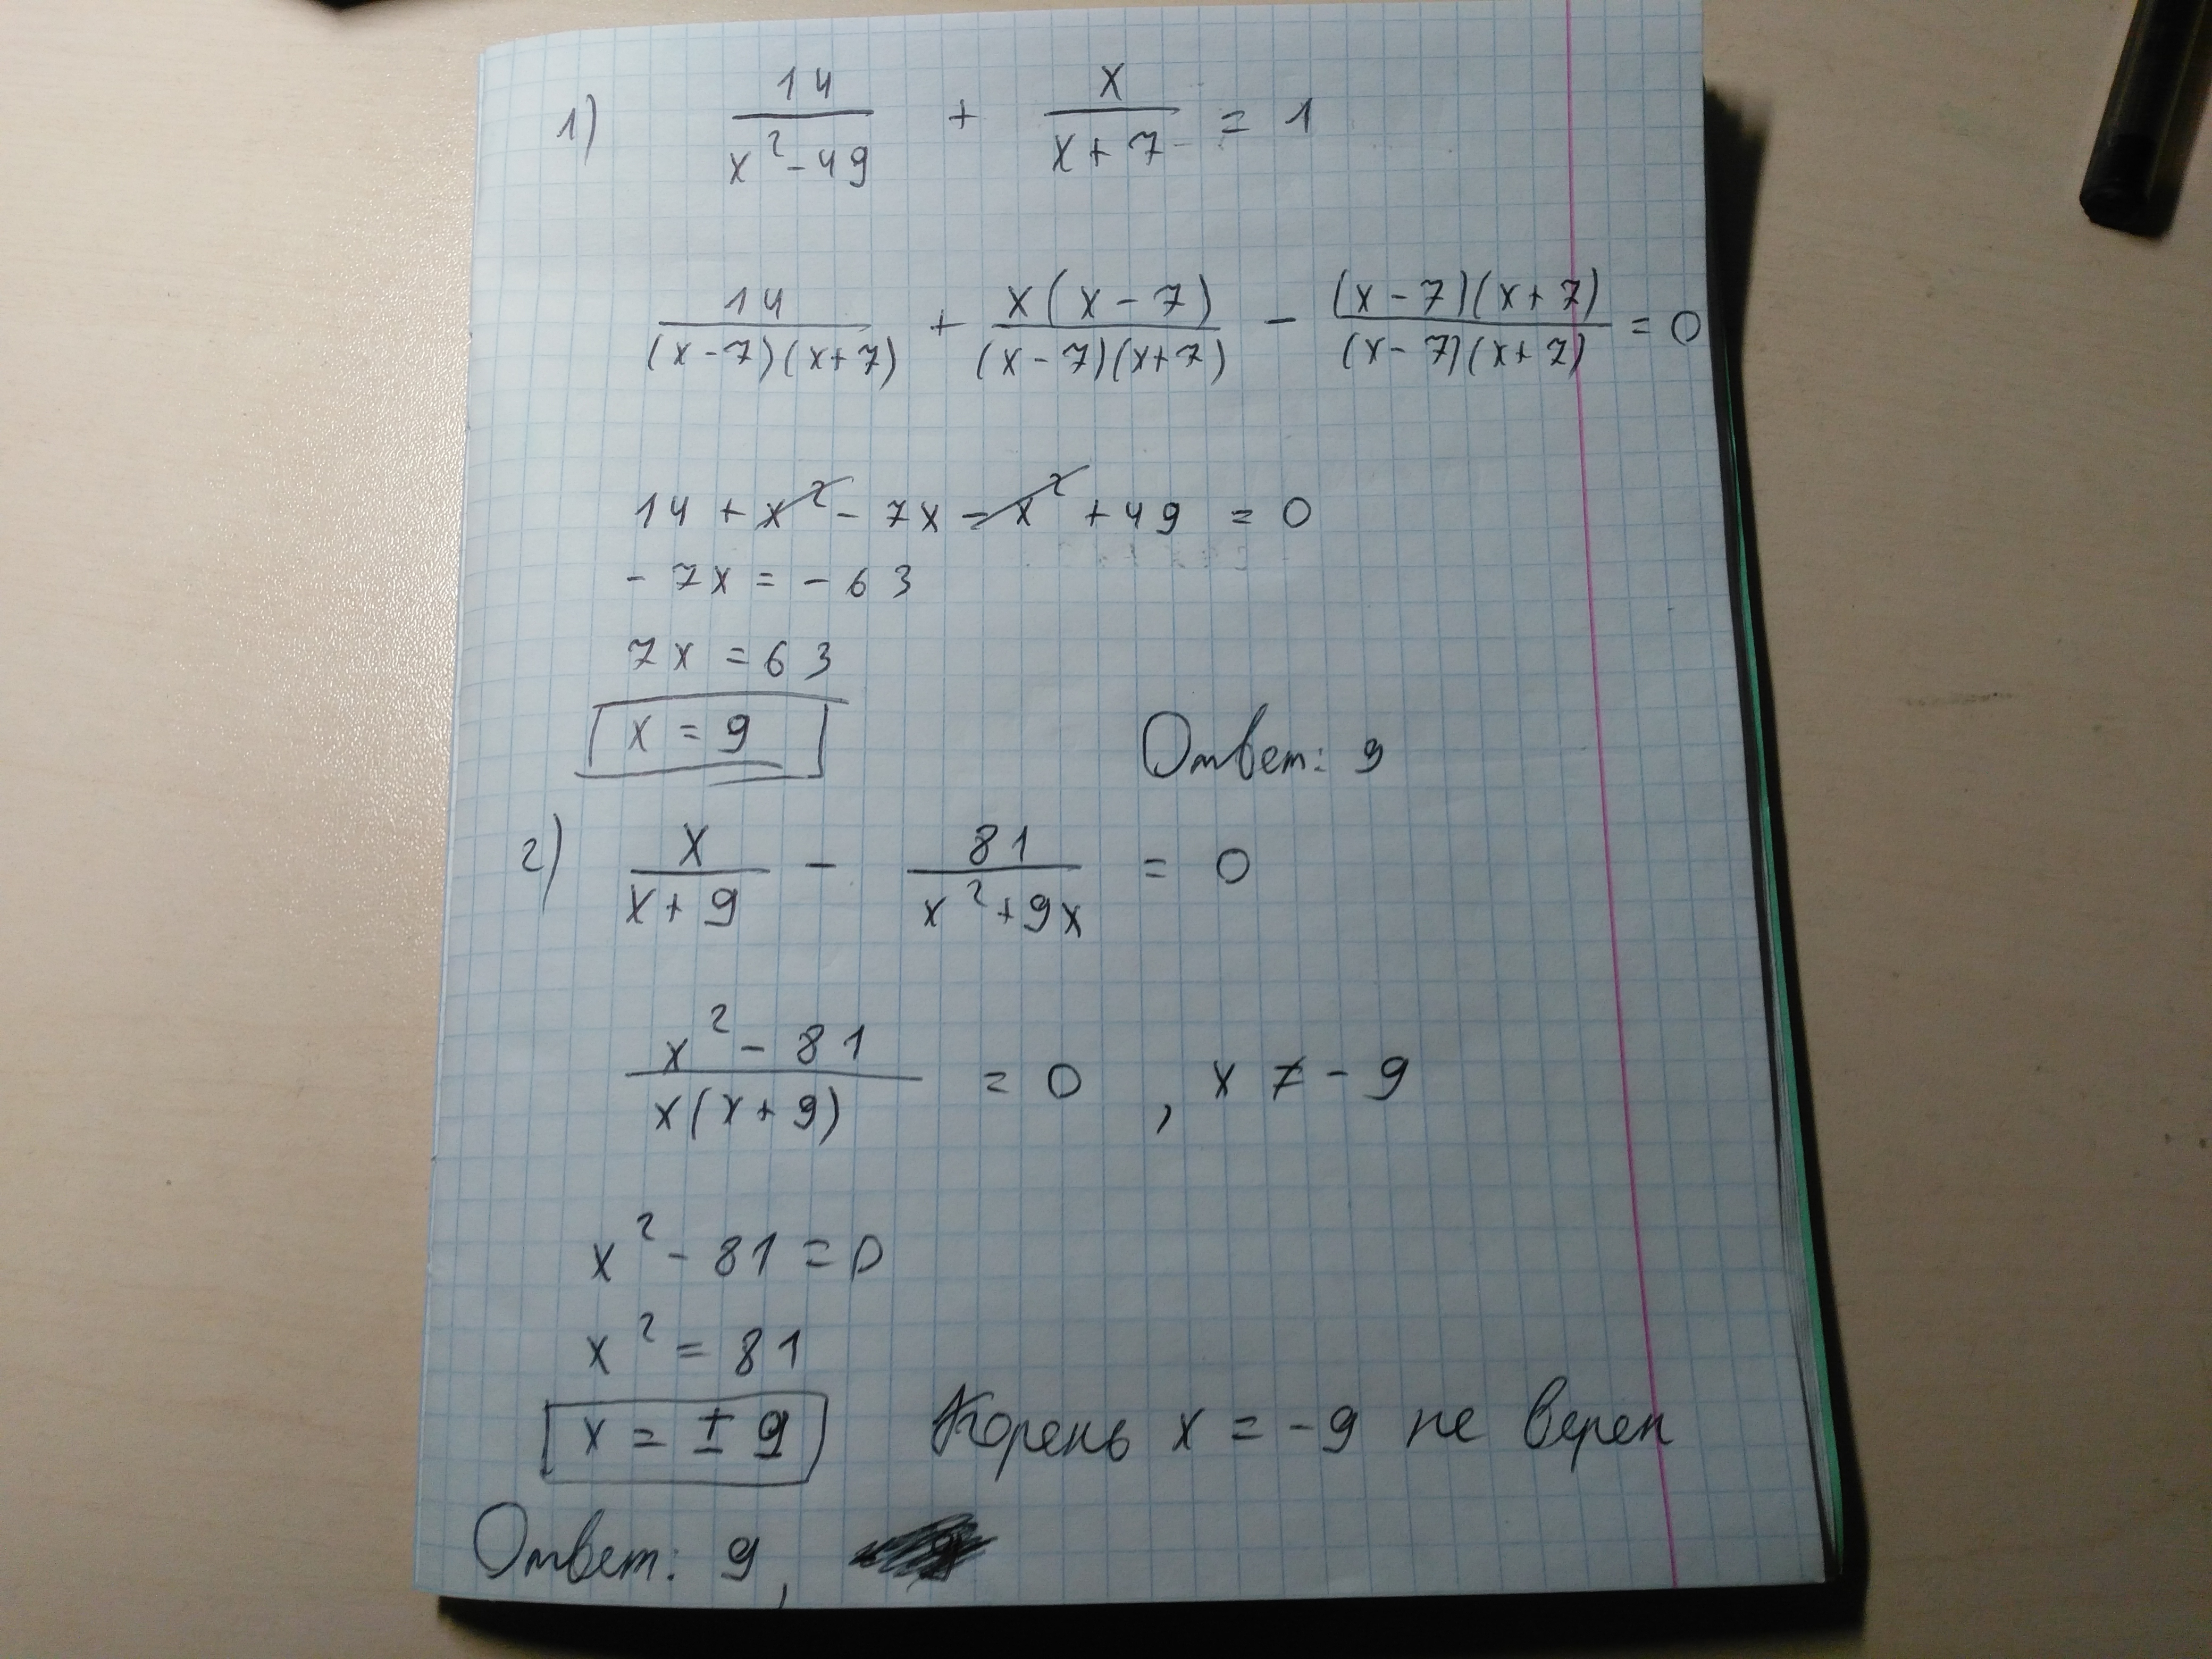 1) 14/(x²-49) + x/(x+7) = 1
14/((x-7)(x+7)) + x(x-7)/((x-7)(x+7)) - (x-7)(x+7)/((x-7)(x+7)) = 0
14 + x² - 7x - x² + 49 = 0
- 7x = - 63
7x = 63
x = 9
Ответ: 9
2) x/(x+9) - 81/(x²+9x) = 0
(x²-81)/(x(x+9)) = 0 , x ≠ - 9
x² - 81 = 0
x² = 81
x = ± 9 Корень x = -9 не верен
Ответ: 9,